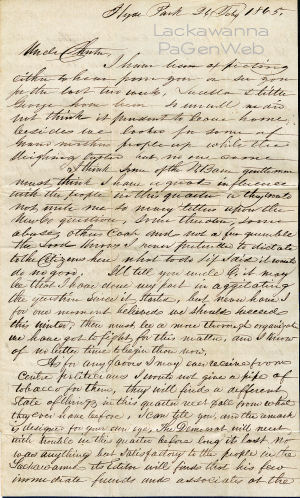 Hyde Park 26 Feby 1865.
Lackawanna
PaGenWeb
Uncle
I have been expecting
either to hear from you or see you
for the last two weeks, & little
George have been so unwell we did
not think it prudent to leave home,
besides we looked for some of
people up while the
sleighing lasted but no one came
I think some of the gentlemen
must think I have a great influence
with the people in this quarter as they wrote
me so many letters upon the
New Co question, Some threaten, some
abuse, others coax and not a few grumble
the Lord knows I never pretended to dictate
to the Citizens here what to do if I did it would
do no good, I'll tell you uncle it may
be that I have done my part in aggetating
the question since it started, but never have I
for one moment believed we should succeed
this winter, there must be a more thorough organization
we have got to fight for this matter, and I know
of no better time to begin than now.
As for any favors I may receive from
politicians I would not give a pipe of
tobacco for them, they will find a different
state of things in this quarter next fall from what
they ever have before, I can tell you, and this remark
is designed for your own eye, The Democrat will meet
with trouble in this quarter before long it last
was anything but satisfactory to the people in the
Lackawanna its editor will find that his few
immediate friends and associates at the